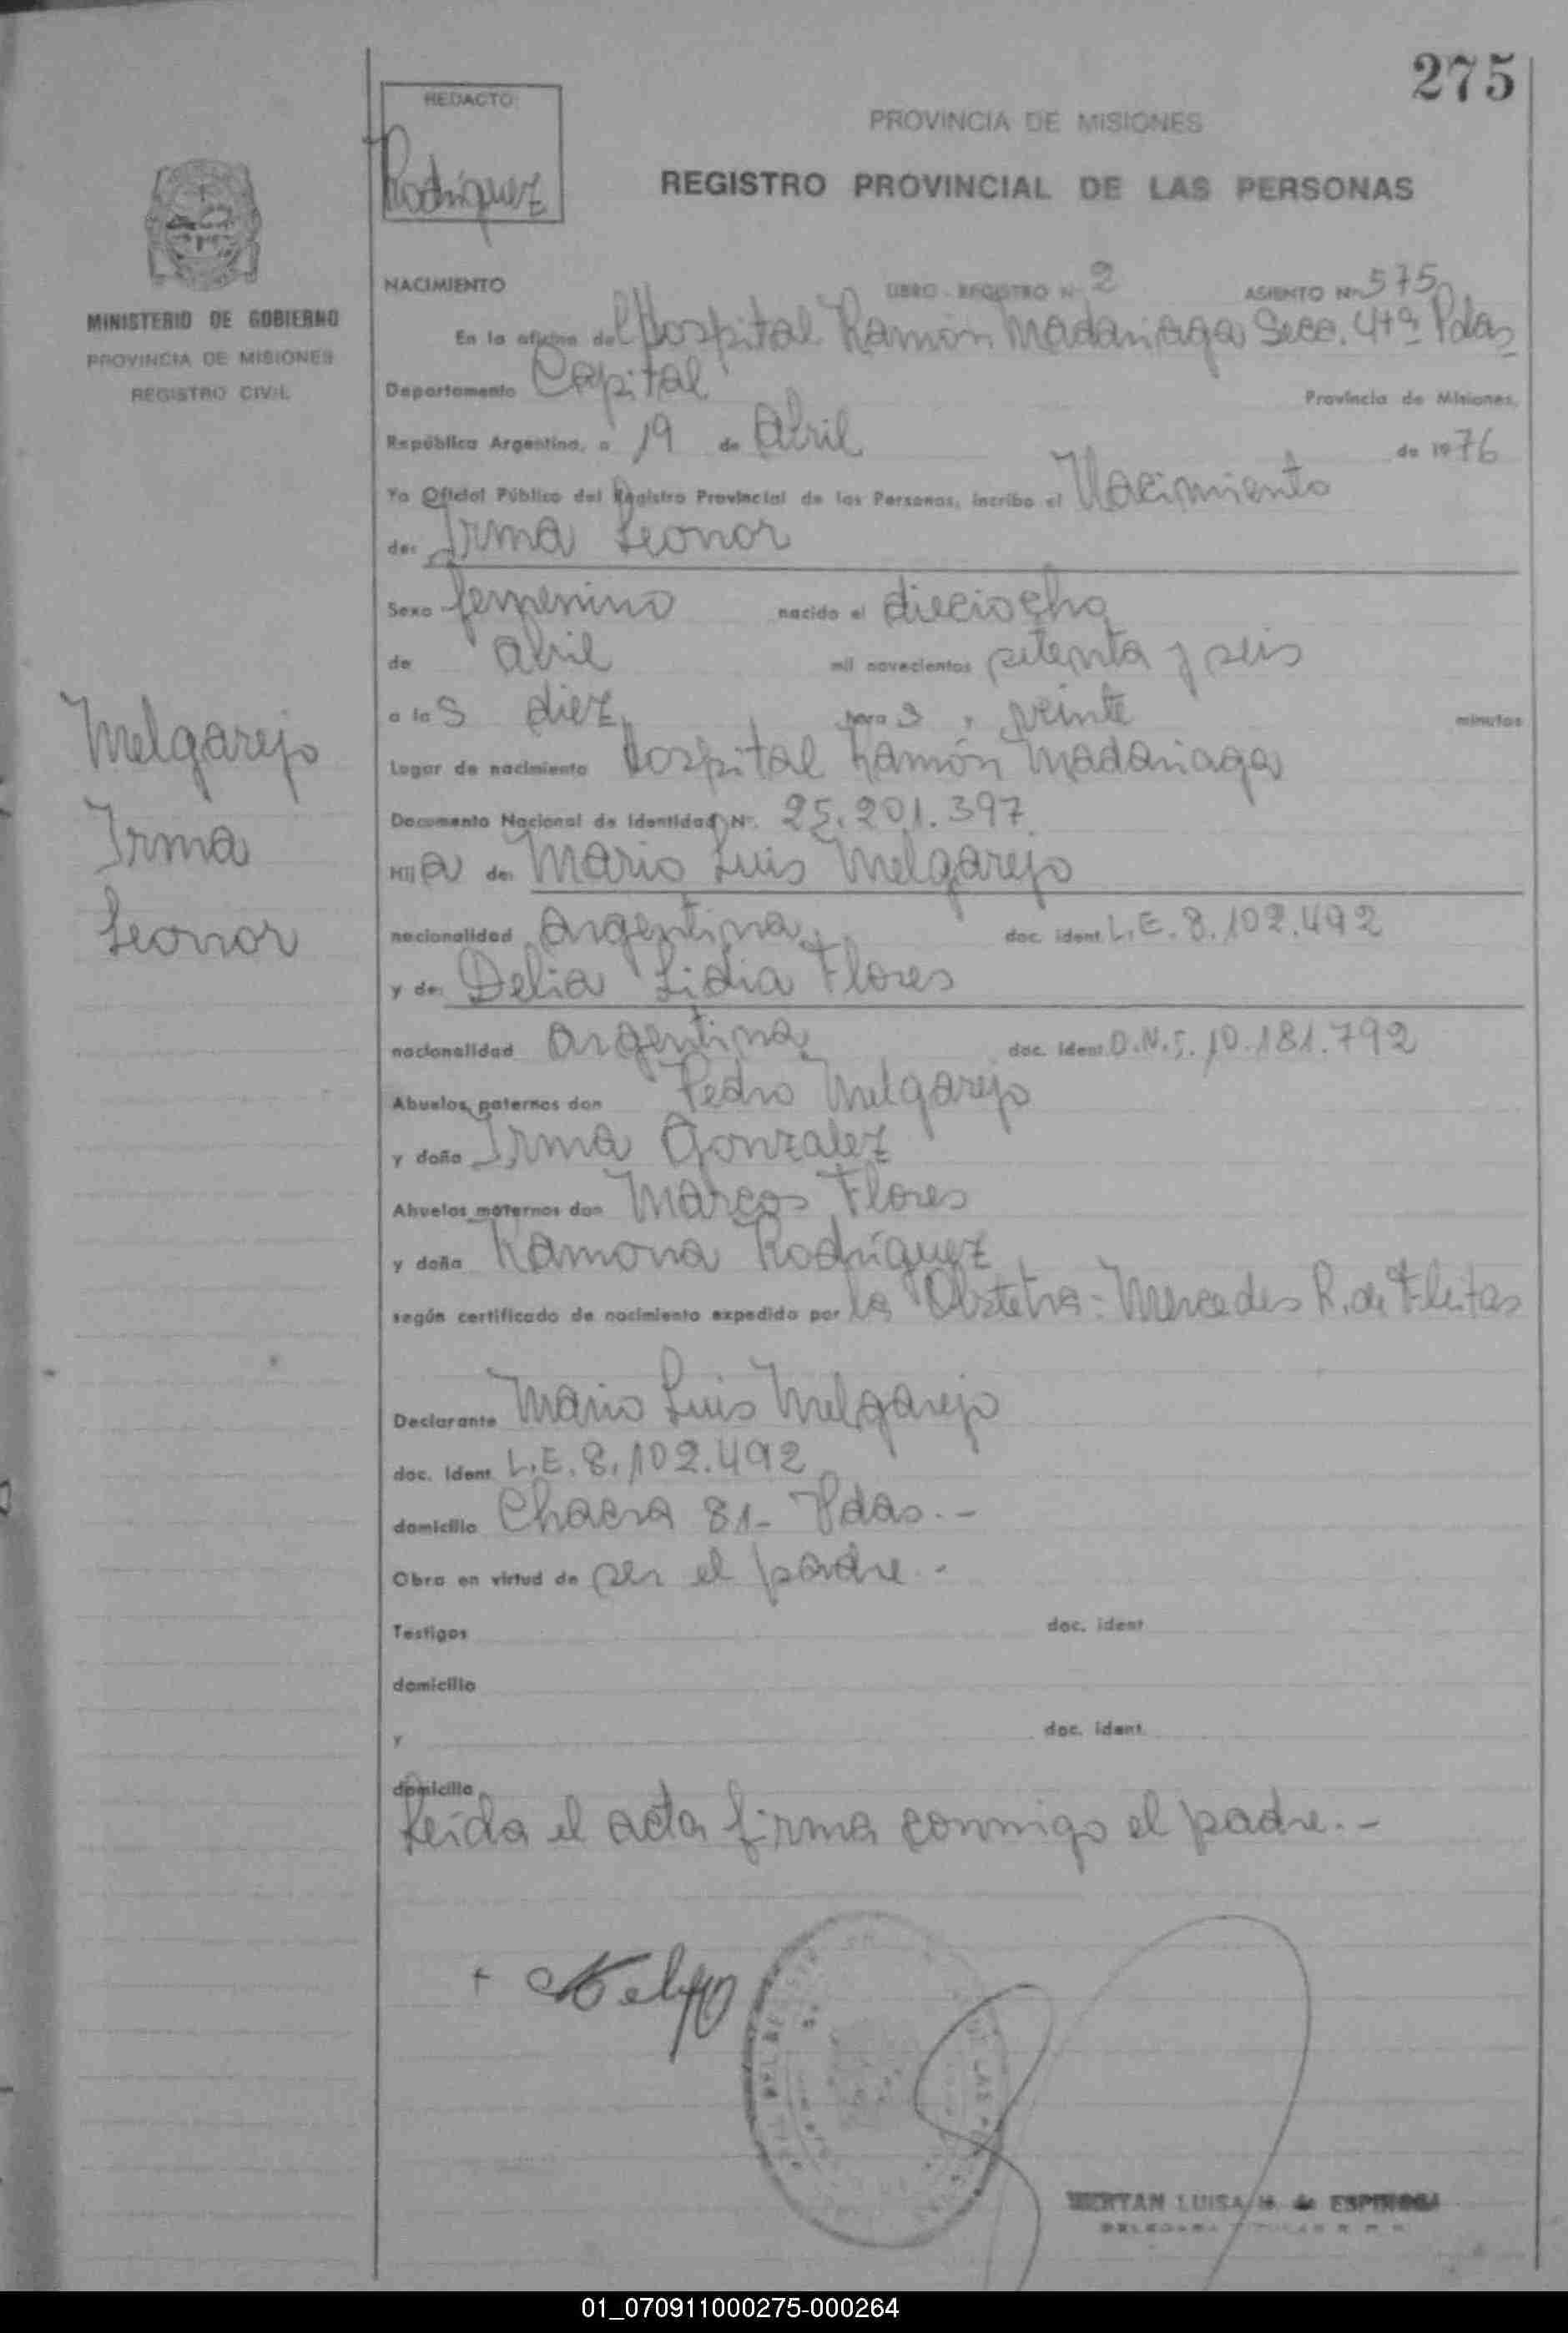 275
REDACTO:
Rodríguez
PROVINCIA DE MISIONES
REGISTRO PROVINCIAL DE LAS PERSONAS
MINISTERIO DE GOBIERNO
PROVINCIA DE MISIONES
REGISTRO CIVIL
NACIMIENTO LIBRO - REGISTRO Nº 2 ASIENTO Nº 575
En la oficina del Hospital Ramón Madariaga Secc. 4ta Pdas
Departamento Capital Provincia de Misiones,
República Argentina, a 19 de Abril de 1976
Yo Oficial Público del Registro Provincial de las Personas, incribo el Nacimiento
de: Irma Leonor
Sexo femenino nacido el dieciocho
de abril mil novecientos setenta y seis
a las diez horas y veinte minutos
Lugar de nacimiento Hospital Ramón Madariaga
Documento Nacional de Identidad Nº. 25.201.397
Hija de: Mario Luis Melgarejo
nacionalidad argentina doc. ident. L.E. 8.102.492
y de: Delia Lidia Flores
nacionalidad argentina doc. ident. D.N.I. 10.181.792
Abuelos paternos don Pedro Melgarejo
y doña Irma Gonzalez
Abuelos maternos don Marcos Flores
y doña Ramona Rodríguez
según certificado de nacimiento expedido por la Obstetra - Mercedes R. de Fleitas
Declarante Mario Luis Melgarejo
doc. Ident. L.E. 8.102.492
domicilio Chacra 81- Pdas.-
Obra en virtud de ser el padre.-
Testigos doc. ident.
domicilio
y doc. ident.
domicilio
Leída el acta firma conmigo el padre.-
Melgarejo
Irma
Leonor
LUISA M. de ESPINOSA
01_070911000275-000264